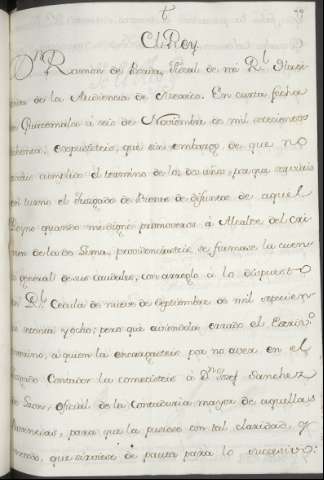 El Rey
Dn. Ramon de Posada, Fiscal de mi Rl. Hacienda
de la Audiencia de Mexico. En carta fecha
en Guatemala á seis de Noviembre de mil setecientos
ochenta; expusisteis, que sin embargo de que no
cumplido el termino de los dos años, porque
en turno el Juzgado de Bienes de difuntos de aquel
Reyno quando me digné promoveros á Alcalde del Crimen
de la de Lima, providenciasteis se formase la cuenta
general de sus caudales, con arreglo á lo dispuesto
Rl. Cedula de nueve de Septiembre de mil setecientos
setenta y ocho; pero que el Escrivno.
á quien la encargasteis por no aver en el
Juzgado Contador la cometisteis á Dn. Josef Sanchez
de Leon, oficial de la Contaduria mayor de aquellas
Provincias, para que la pusiese con tal claridad, y
que sirviese de pauta para lo sucesivo: